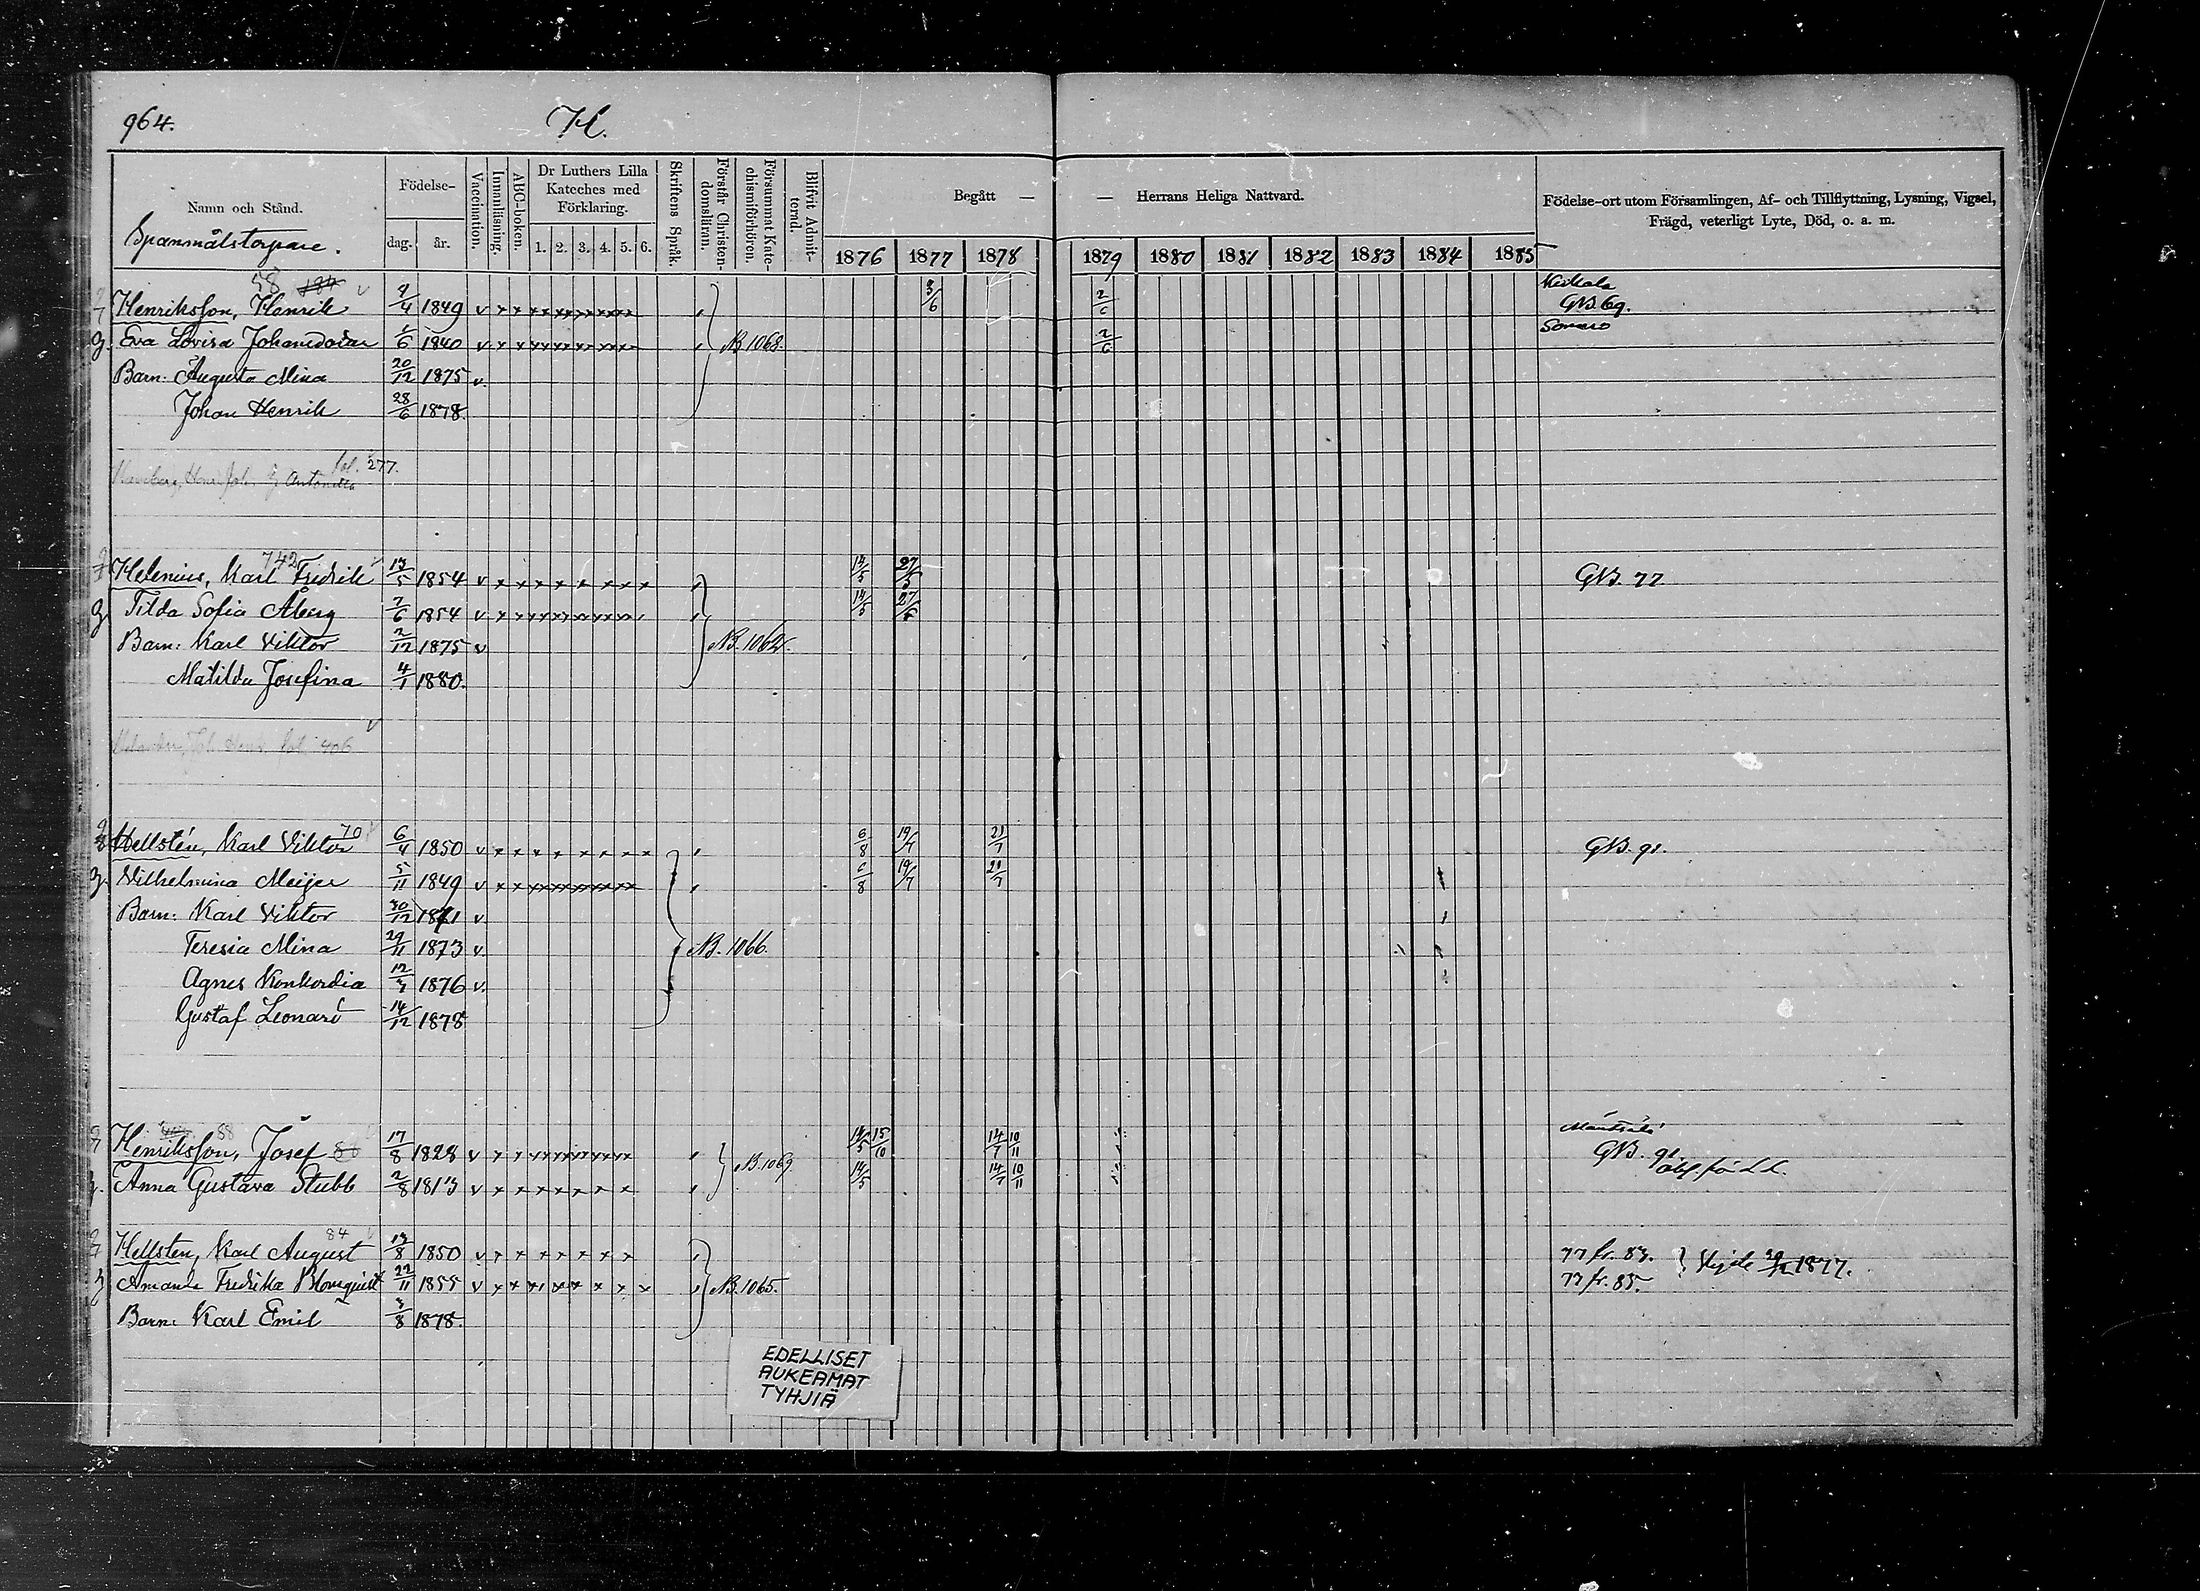 964.
H.
Namn och Stånd.
Spannmålstorpare.
Födelse-
dag. år.
Vaccination.
Innanläsning.
ABC-boken.
Dr Luthers Lilla
Kateches med
Förklaring.
1. 2. 3. 4. 5. 6.
Skriftens Språk.
Förstår Christen-
domsläran.
Försummat Kate-
chismiförhören.
Blifvit Admit-
terad.
Begått — — Herrans Heliga Nattvard.
1876 1877 1878 1879 1880 1881 1882 1883 1884 1885
Födelse-ort utom Församlingen, Af- och Tillflyttning, Lysning, Vigsel,
Frägd, veterligt Lyte, Död, o. a. m.
58
Henriksson, Henrik 4 1849 v 3/6 2/6 GB. 69.
Eva Lovisa Johansdoter 6 1840 v NB 1068. 2/6 Somero
Barn: Augusta Mina 20/12 1875 v.
Johan Henrik 28/6 1878.
fol. 277.
742
Helenius, Karl Fredrik 13/5 1854 v 14/5 27/5 GB. 77
Tilda Sofia Åberg 7/6 1854 v 14/5 27/5
Barn: Karl Viktor 2/12 1875 v NB. 1064.
Matilda Josefina 4/1 1880.
fol. 406
70
Hellstén, Karl Viktor 6/4 1850 v 6/8 19/7 21/7 GB. 91.
Vilhelmina Meijer 5/11 1849 v 6/8 19/7 21/7
Barn: Karl Viktor 30/12 1871 v
Teresia Mina 29/11 1873 v. NB. 1066.
Agnes Konkordia 12/3 1876 v.
Gustaf Leonard 14/12 1878
88
Henriksson, Josef 17/8 1828 v NB. 1069 14/5 15/10 14/7 10/11 GB. 91.
Anna Gustava Stubb 2/8 1813 v 14/5 14/7 10/11
84
Hellsten, Karl August 13/8 1850 v 77 fr. 83.
Amanda Fredrika Blomqvist 22/11 1855 v NB. 1065. 77 fr. 85. Vigde 1877.
Barn: Karl Emil 3/8 1878.
EDELLISET
AUKEAMAT
TYHJIÄ